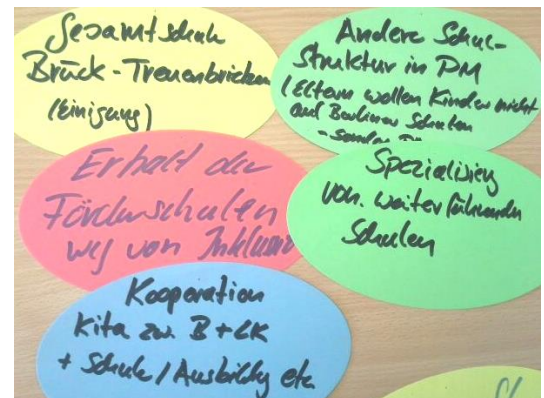 Gesamtschule
Brück-Treuenbrietzen
(Einigung)
Andere Schul-
struktur in PM
(Eltern wollen Kinder nicht
auf Berliner Schulen
Erhalt der
Förderschulen
weg von Inklusion
Spezialisierg
von weiterführenden
Schulen
Kooperation
Kita zw. B + LK
+ Schule / Ausbildg etc